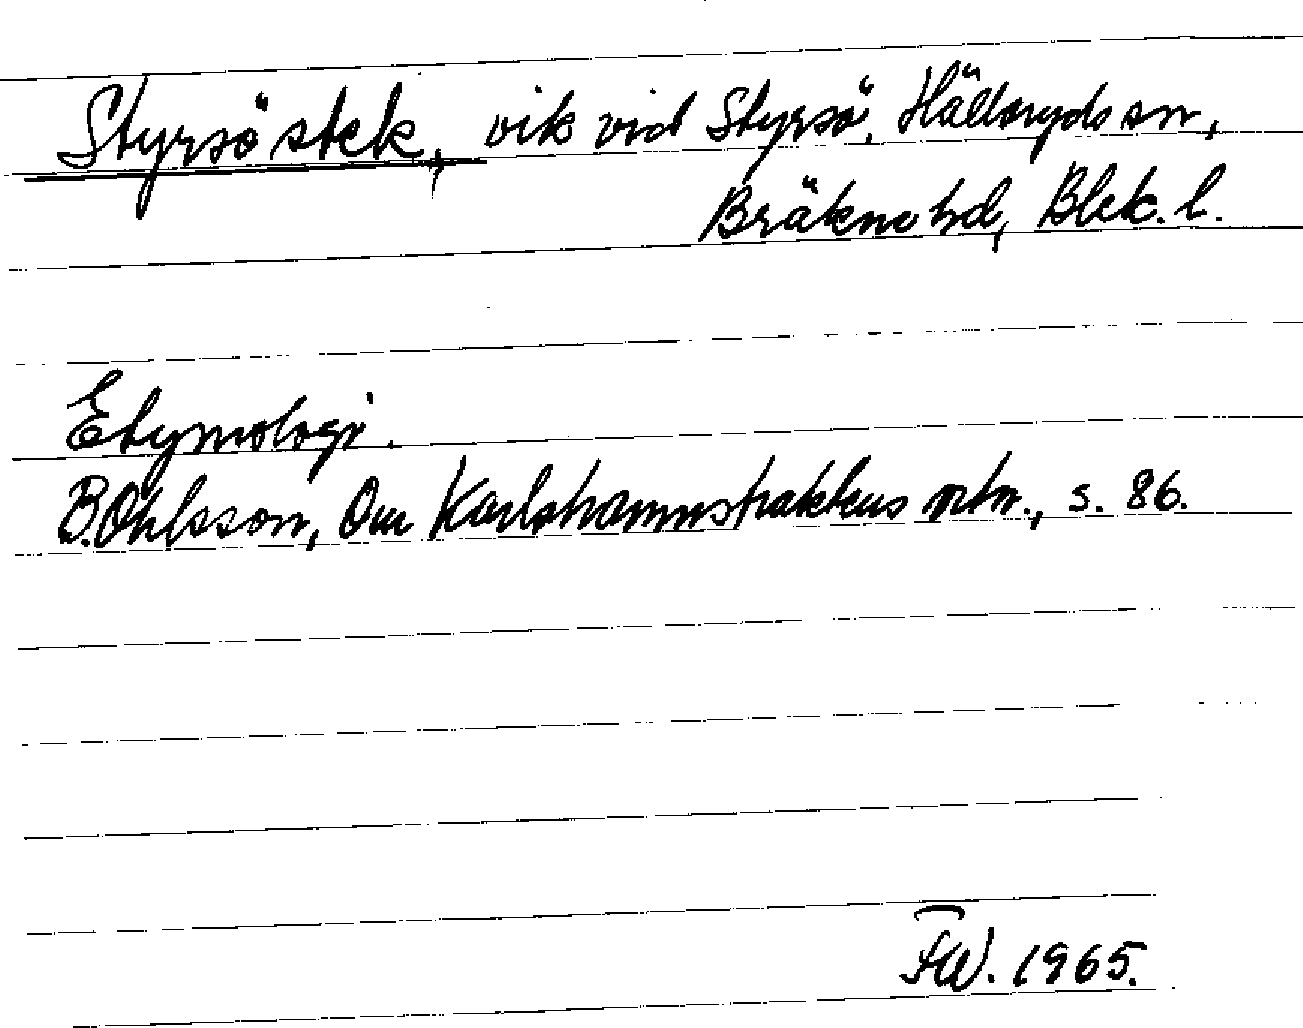 Styrsö stek, vik vid Styrsö, Hällaryds sn,
Bräkne hd, Blek. l.
Etymologi.
B. Ohlsson, Om Karlshamnstraktens ortn., s. 86.
FW. 1965.